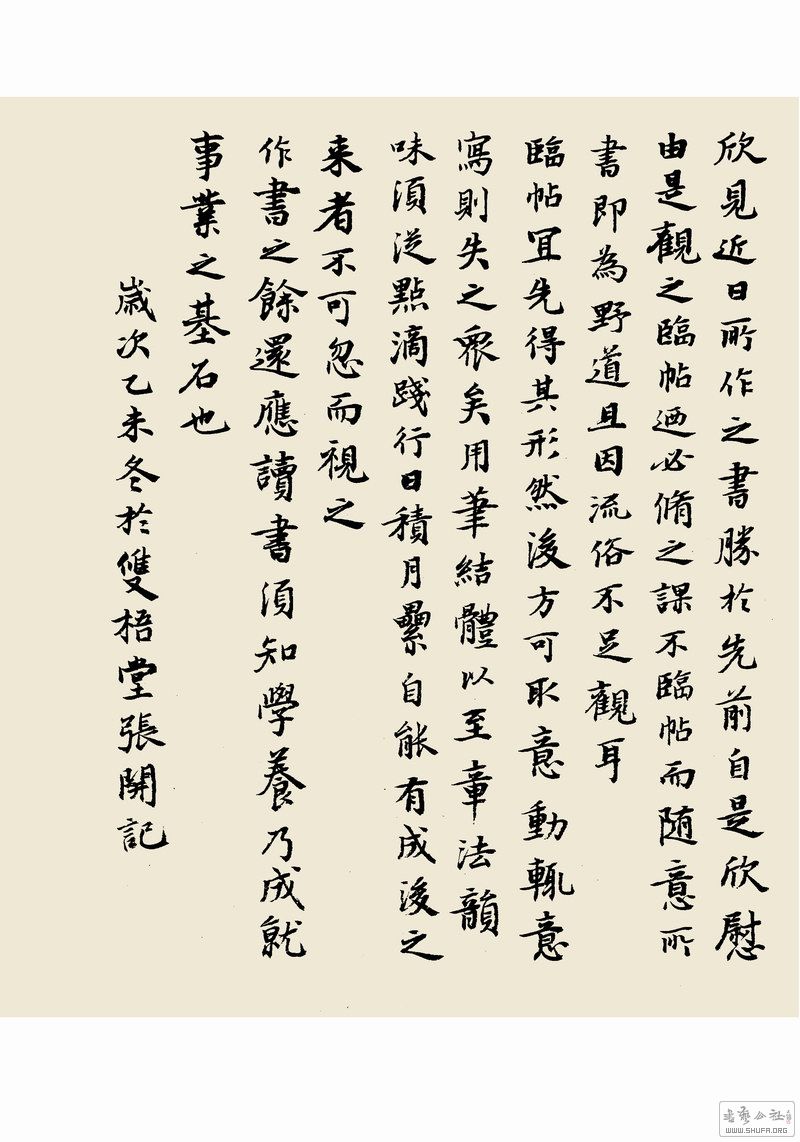 欣見近日所作之書勝於先前自是欣慰
由是觀之臨帖迺必脩之課不臨帖而随意所
書即為野道且因流俗不足觀耳
臨帖宜先得其形然後方可取意動輒意
寫則失之衆矣用筆結體以至章法韻
味須從點滴踐行日積月纍自能有成後之
来者不可忽而視之
作書之餘還應讀書須知學養乃成就
事業之基石也
歲次乙未冬於雙梧堂張開記
书艺公社
WWW.SHUFA.ORG